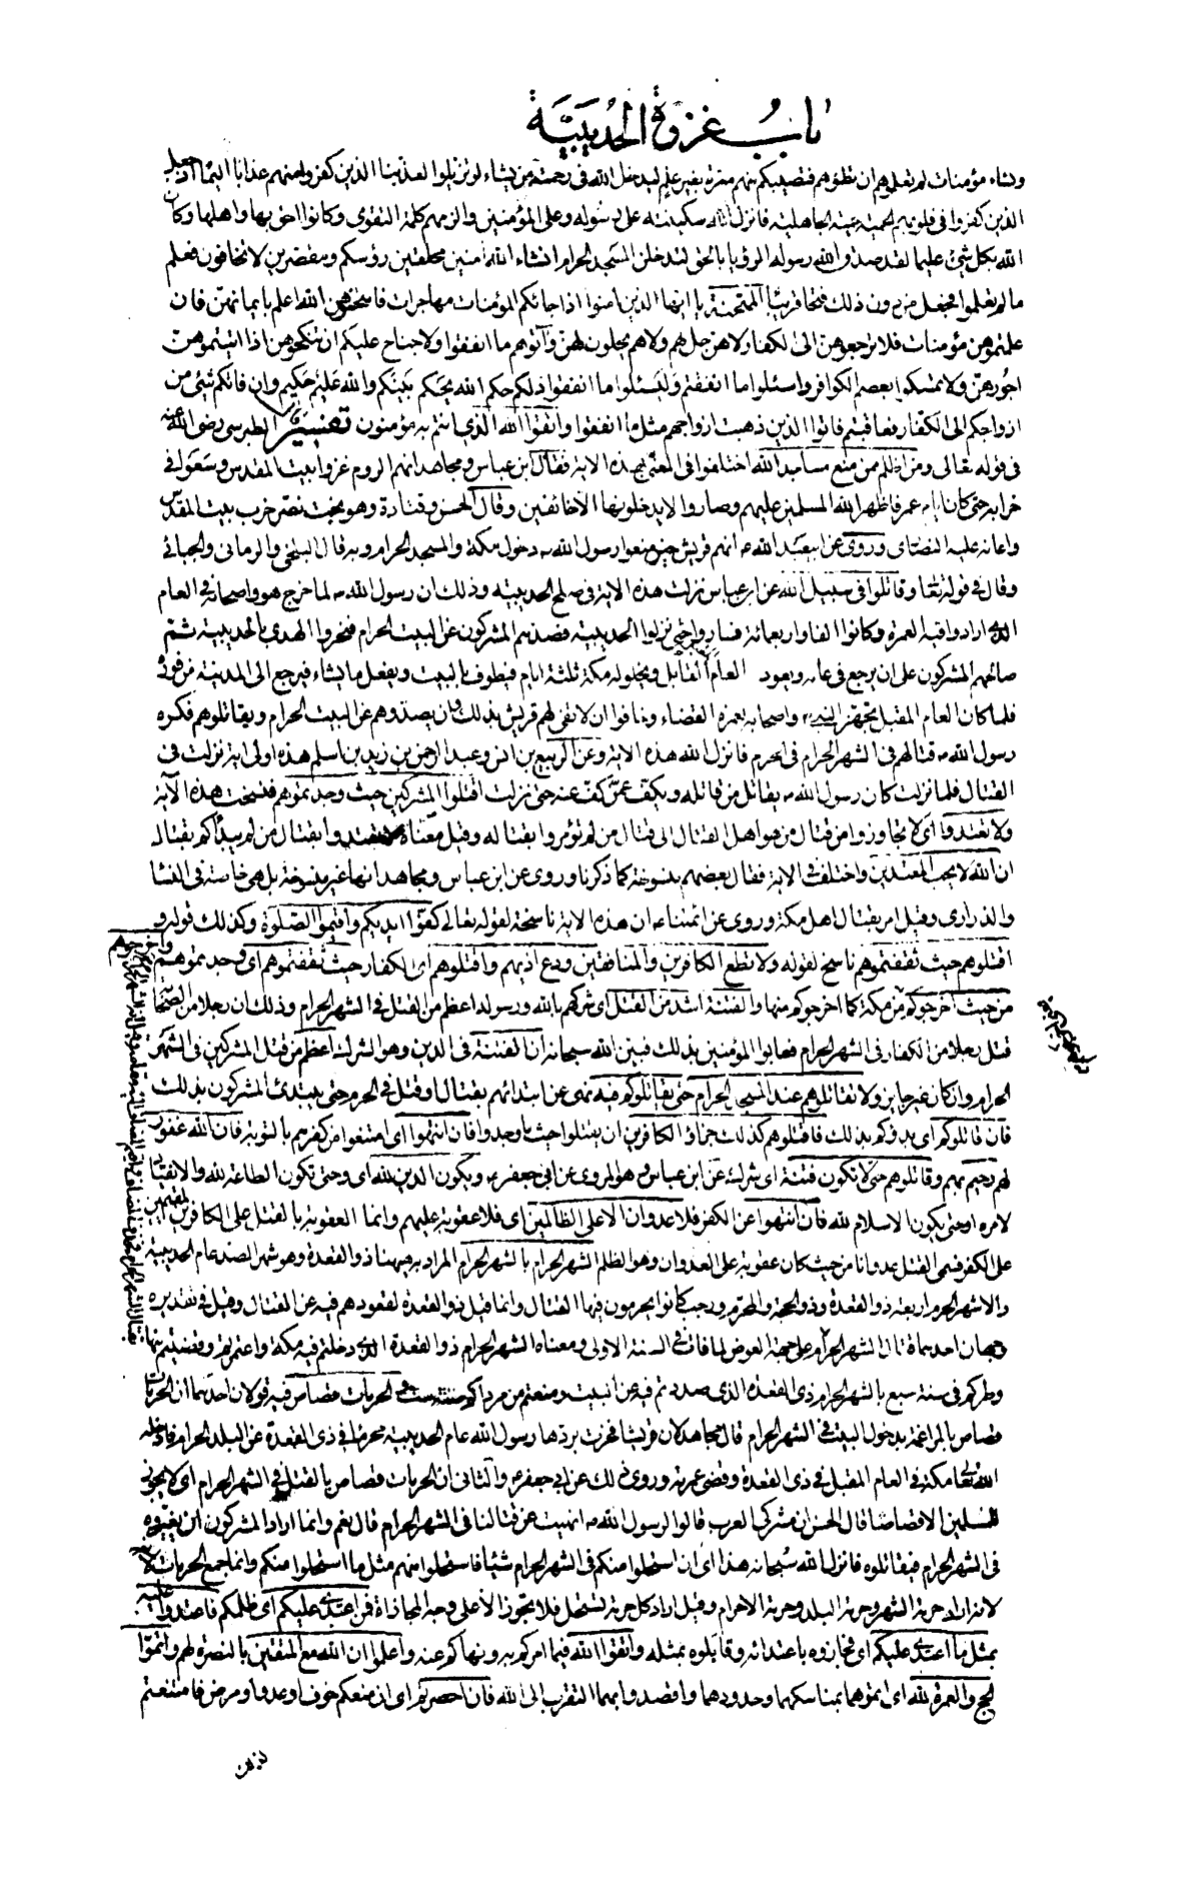 باب غزوة الحديبية
ونساء مؤمنات لم تعلموهم ان تطؤهم فتصيبكم منهم معرة بغير علم ليدخل الله فى رحمته من يشاء لو تزيلوا لعذبنا الذين كفروا منهم عذابا اليما اذ جعل
الذين كفروا فى قلوبهم الحمية حمية الجاهلية فانزل الله سكينته على رسوله وعلى المؤمنين والزمهم كلمة التقوى وكانوا احق بها واهلها وكان
الله بكل شئ عليما لقد صدق الله رسوله الرؤيا بالحق لتدخلن المسجد الحرام انشاء الله امنين محلقين رؤسكم ومقصرين لا تخافون فعلم
ما لم تعلموا فجعل من دون ذلك فتحا قريبا الممتحنة يا ايها الذين امنوا اذا جائكم المؤمنات مهاجرات فامتحنوهن الله اعلم بايمانهن فان
علمتموهن مؤمنات فلا ترجعوهن الى الكفار لا هن حل لهم ولا هم يحلون لهن وآتوهم ما انفقوا ولا جناح عليكم ان تنكحوهن اذا اتيتموهن
اجورهن ولا تمسكوا بعصم الكوافر واسئلوا ما انفقتم وليسئلوا ما انفقوا ذلكم حكم الله يحكم بينكم والله عليم حكيم وان فاتكم شئ من
ازواجكم الى الكفار فعاقبتم فاتوا الذين ذهبت ازواجهم مثل ما انفقوا واتقوا الله الذى انتم به مؤمنون تفسير قال الطبرسى رضى الله عنه
فى قوله تعالى ومن اظلم ممن منع مساجد الله اختلفوا فى المعنى بهذه الاية فقال ابن عباس ومجاهد انهم الروم غزوا بيت المقدس وسعوا فى
خرابه حتى كان ايام عمر فاظهر الله المسلمين عليهم وصاروا لا يدخلونها الا خائفين وقال الحسن وقتادة وهو بخت نصر خرب بيت المقدس
واعانه عليه النصارى وروى عن ابيعبد الله ع انهم قريش حين منعوا رسول الله ص دخول مكة والمسجد الحرام وبه قال البلخى والرمانى والجبائى
وقال فى قوله تعا وقاتلوا فى سبيل الله عن ابن عباس نزلت هذه الاية فى صلح الحديبية وذلك ان رسول الله ص لما خرج هو واصحابه فى العام
الذى ارادوا فيه العمرة وكانوا الفا واربعمائة فساروا حتى نزلوا الحديبية فصدهم المشركون عن البيت الحرام فنحروا الهدى بالحديبية ثم
صالحهم المشركون على ان يرجع فى عامه ويعود العام القابل ويخلو له مكة ثلثة ايام فيطوف بالبيت ويفعل ما يشاء فيرجع الى المدينة من فوره
فلما كان العام المقبل تجهز النبى ص واصحابه لعمرة القضاء وخافوا ان لا تفى لهم قريش بذلك وان يصدوهم عن البيت الحرام ويقاتلوهم فكره
رسول الله ص قتالهم فى الشهر الحرام فى الحرم فانزل الله هذه الاية وعن الربيع بن انس وعبد الرحمن بن زيد بن اسلم هذه اولى اية نزلت فى
القتال فلما نزلت كان رسول الله ص يقاتل من قاتله ويكف عمن كف عنه حتى نزلت اقتلوا المشركين حيث وجدتموهم فنسخت هذه الآية
ولا تعتدوا اى لا تجاوزوا من قتال من هو اهل القتال الى قتال من لم تؤمروا بقتاله وقيل معناه لا تعتدوا بقتال من لم يبدأكم بقتاله
ان الله لا يحب المعتدين واختلف فى الاية فقال بعضهم منسوخة كما ذكرنا وروى عن ابن عباس ومجاهد انها غير منسوخة بل هى خاصة فى النساء
والذرارى وقيل امر بقتال اهل مكة وروى عن ائمتنا ع ان هذه الاية ناسخة لقوله تعالى كفوا ايديكم واقيموا الصلوة وكذلك قوله و
اقتلوهم حيث ثقفتموهم ناسخ لقوله ولا تطع الكافرين والمنافقين ودع اذيهم واقتلوهم اى الكفار حيث ثقفتموهم اى وجدتموهم واخرجوهم
من حيث اخرجوكم من مكة كما اخرجوكم منها والفتنة اشد من القتل اى شركهم بالله ورسوله اعظم من القتل فى الشهر الحرام وذلك ان رجلا من الصحابة
قتل رجلا من الكفار فى الشهر الحرام فعابوا المؤمنين بذلك فبين الله سبحانه ان الفتنة فى الدين وهو الشرك اعظم من قتل المشركين فى الشهر
الحرام وان كان غير جايز ولا تقاتلوهم عند المسجد الحرام حتى يقاتلوكم فيه نهى عن ابتدائهم بقتال او قتل فى الحرم حتى يبتدئ المشركون بذلك
فان قاتلوكم اى بدؤكم بذلك فاقتلوهم كذلك جزاء الكافرين ان يقتلوا حيث ما وجدوا فان انتهوا اى امتنعوا من كفرهم بالتوبة فان الله غفور
لهم رحيم بهم وقاتلوهم حتى لا تكون فتنة اى شرك عن ابن عباس وهو المروى عن ابى جعفر ع ويكون الدين لله اى وحتى تكون الطاعة لله والانقياد
لامره او حتى يكون الاسلام لله فان انتهوا عن الكفر فلا عدوان الا على الظالمين اى فلا عقوبة عليهم وانما العقوبة بالقتل على الكافرين المقيمين
على الكفر فسمى القتل عدوانا من حيث كان عقوبة على العدوان وهو الظلم الشهر الحرام بالشهر الحرام المراد به هيهنا ذو القعدة وهو شهر الصد عام الحديبية
والاشهر الحرم اربعة ذو القعدة وذو الحجة والمحرم ورجب كانوا يحرمون فيها القتال وانما قيل ذو القعدة لقعودهم فيه عن القتال وقيل فى تقديره
وجهان احدهما قتال الشهر الحرام على جهة العوض لما فات فى السنة الاولى ومعناه الشهر الحرام ذو القعدة الذى دخلتم فيه مكة واعتمرتم وقضيتم منها
وطركم فى سنة سبع بالشهر الحرام ذى القعدة الذى صددتم فيه عن البيت ومنعتم من مرادكم والحرمات قصاص فيه قولان احدهما ان الحرمات
قصاص بالمراغمة بدخول البيت فى الشهر الحرام قال مجاهد لان قريشا فخرت بردها رسول الله عام الحديبية محرما فى ذى القعدة عن البلد الحرام فادخله
الله تعا مكة فى العام المقبل فى ذى القعدة وقضى عمرته وروى ذلك عن ابى جعفر ع والثانى ان الحرمات قصاص بالقتل فى الشهر الحرام اى لا يجوز
للمسلمين الا قصاصا قال الحسن ان مشركى العرب قالوا لرسول الله ص انهيت عن قتالنا فى الشهر الحرام قال نعم وانما اراد المشركون ان يغيروه
فى الشهر الحرام فيقاتلوه فانزل الله سبحانه هذا اى ان استحلوا منكم فى الشهر الحرام شيئا فاستحلوا منهم مثل ما استحلوا منكم وانما جمع الحرمات
لانه اراد حرمة الشهر وحرمة البلد وحرمة الاحرام وقيل اراد كل حرمة تستحل فلا يجوز الا على وجه المجازاة فمن اعتدى عليكم اى ظلمكم فاعتدوا عليه
بمثل ما اعتدى عليكم اى فجازوه باعتدائه وقابلوه بمثله واتقوا الله فيما امركم به ونهاكم عنه واعلموا ان الله مع المتقين بالنصرة لهم واتموا
الحج والعمرة لله اى اتموهما بمناسكهما وحدودهما واقصدوا بهما التقرب الى الله فان احصرتم اى ان منعكم خوف او عدو او مرض فامتنعتم